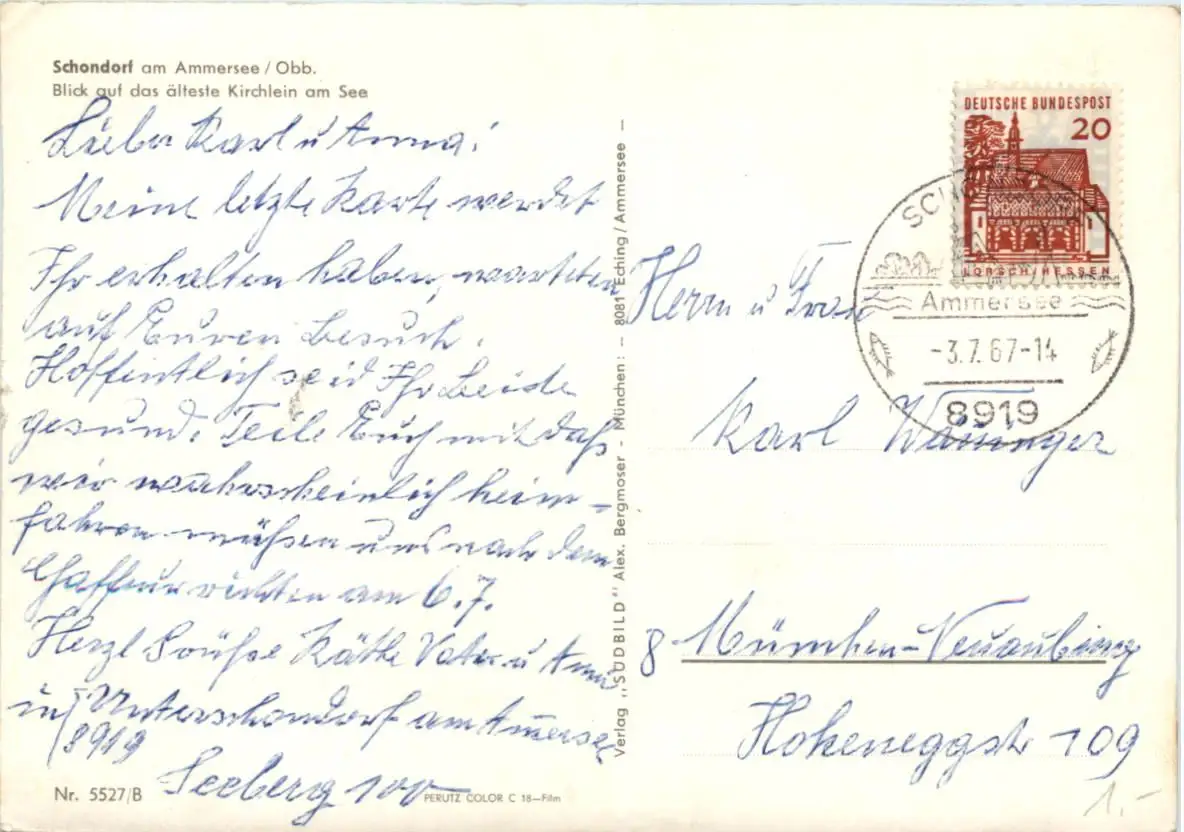 Schondorf am Ammersee / Obb.
Blick auf das älteste Kirchlein am See
Lieber Karl u Anna!
Meine letzte Karte werdet
Ihr erhalten haben, warteten
auf Euren Besuch.
Hoffentlich seid Ihr Beide
gesund. Teile Euch mit daß
wir wahrscheinlich heim-
fahren müßen uns nach dem
Chaffeur richten am 6.7.
Herzl Grüße Käthe Vater u
in Unterschondorf am Ammersee
8919
Seeberg 100
Nr. 5527/B
PERUTZ COLOR C 18—Film
Verlag „SÜDBILD" Alex. Bergmoser - München: - 8081 Eching/Ammersee -
DEUTSCHE BUNDESPOST
20
LORSCH/HESSEN
SCH
Ammersee
-3.7.67-14
8919
Herrn u Frau
Karl
8 München-Neuaubing
Hoheneggstr 109
1.-